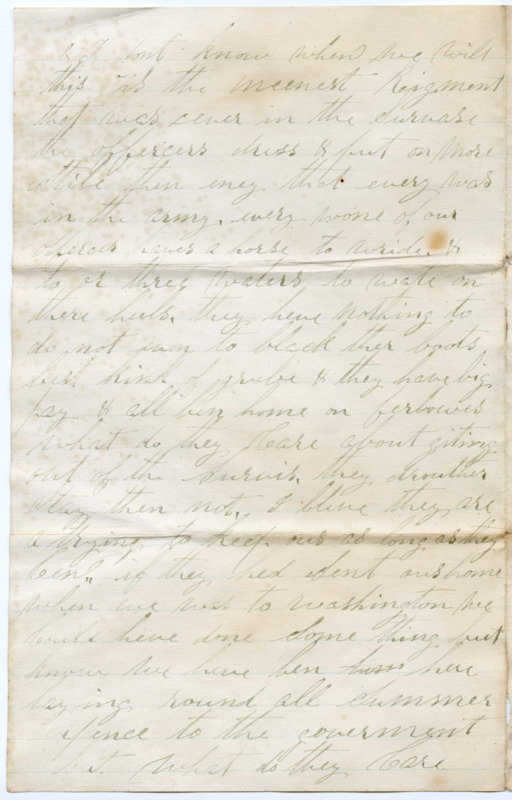 & I dont know when we will
this is the meenest Rigment
that was cever in the survase
the offercers dress & put on more
stile then eney that every was
in the army, every wone of our
offercers haves a horse to wride, &
to or three waters to wate on
there heels, they have nothing to
do not even to black ther boots
best kind of grube & they have big
pay & all bin home on ferlowes
what do they Care about giting
out of the survis, they drouther
stay then not, I bleve they are
a trying to keep ous as long as they
Cen" if they hed sent ous home
when we was to washington we
would heve done some thing but
know we have ben here
laying round all summer
expence to the goverment
but what do they Care